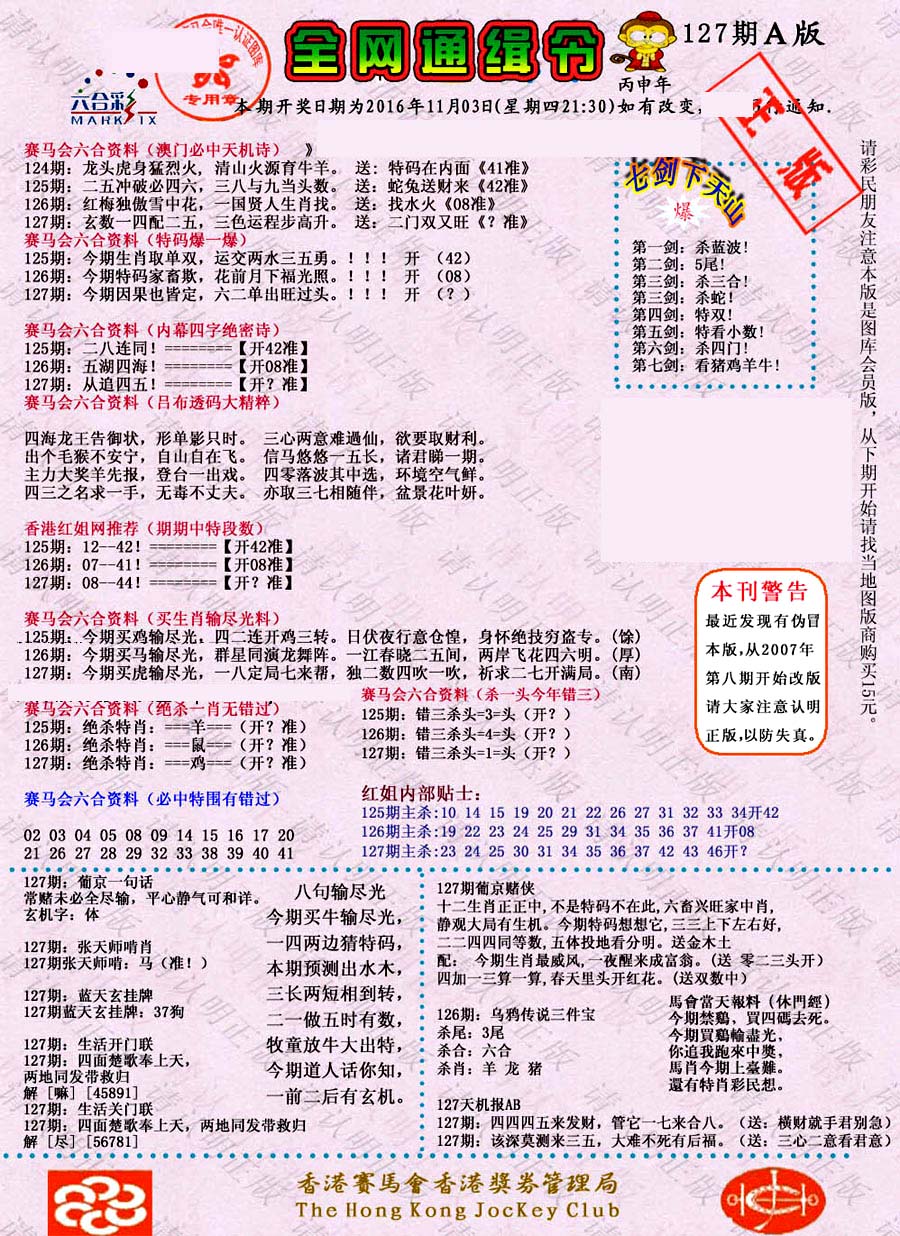 全网通缉令
127期A版
丙申年
专用章
六合彩
MARK SIX
本期开奖日期为2016年11月03日(星期四21:30)如有改变,
通知.
正版
请彩民朋友注意本版是图库会员版，从下期开始请找当地图版商购买15元。
赛马会六合资料（澳门必中天机诗） 》
124期：龙头虎身猛烈火，清山火源育牛羊。 送：特码在内面《41准》
125期：二五冲破必四六，三八与九当头数。 送：蛇兔送财来《42准》
126期：红梅独傲雪中花，一国贤人生肖找。 送：找水火《08准》
127期：玄数一四配二五，三色运程步高升。 送：二门双又旺《？准》
赛马会六合资料（特码爆一爆）
125期：今期生肖取单双，运交两水三五勇。！！！ 开 （42）
126期：今期特码家畜欺，花前月下福光照。！！！ 开 （08）
127期：今期因果也皆定，六二单出旺过头。！！！ 开 （？）
七剑下天山
爆
第一剑：杀蓝波!
第二剑：5尾!
第三剑：杀三合!
第三剑：杀蛇!
第四剑：特双!
第五剑：特看小数!
第六剑：杀四门!
第七剑：看猪鸡羊牛!
赛马会六合资料（内幕四字绝密诗）
125期：二八连同！========【开42准】
126期：五湖四海！========【开08准】
127期：从追四五！========【开？准】
赛马会六合资料（吕布透码大精粹）
四海龙王告御状，形单影只时。 三心两意难過仙，欲要取财利。
出个毛猴不安宁，自山自在飞。 信马悠悠一五长，诸君睇一期。
主力大奖羊先报，登台一出戏。 四零落波其中选，环境空气鲜。
四三之名求一手，无毒不丈夫。 亦取三七相随伴，盆景花叶妍。
香港红姐网推荐（期期中特段数）
125期：12--42！========【开42准】
126期：07--41！========【开08准】
127期：08--44！========【开？准】
本刊警告
最近发现有伪冒
本版,从2007年
第八期开始改版
请大家注意认明
正版,以防失真。
赛马会六合资料（买生肖输尽光料）
125期：今期买鸡输尽光，四二连开鸡三转。日伏夜行意仓惶，身怀绝技穷盗专。(馀)
126期：今期买马输尽光，群星同演龙舞阵。一江春晓二五间，两岸飞花四六明。(厚)
127期：今期买虎输尽光，一八定局七来帮，独二数四吹一吹，祈求二七开满局。(南)
赛马会六合资料（绝杀一肖无错过）
125期：绝杀特肖：===羊===（开？准）
126期：绝杀特肖：===鼠===（开？准）
127期：绝杀特肖：===鸡===（开？准）
赛马会六合资料（杀一头今年错三）
125期：错三杀头=3=头（开？）
126期：错三杀头=4=头（开？）
127期：错三杀头=1=头（开？）
赛马会六合资料（必中特围有错过）
02 03 04 05 08 09 14 15 16 17 20
21 26 27 28 29 32 33 38 39 40 41
红姐内部贴士：
125期主杀:10 14 15 19 20 21 22 26 27 31 32 33 34开42
126期主杀:19 22 23 24 25 29 31 34 35 36 37 41开08
127期主杀:23 24 25 30 31 34 35 36 37 42 43 46开?
127期：葡京一句话
常赌未必全尽输，平心静气可和详。
玄机字：体
127期：张天师啃肖
127期张天师啃：马（准！）
127期：蓝天玄挂牌
127期蓝天玄挂牌：37狗
127期：生活开门联
127期：四面楚歌奉上天，
两地同发带救归
解［嘛］[45891]
127期：生活关门联
127期：四面楚歌奉上天，两地同发带救归
解［尽］[56781]
八句输尽光
今期买牛输尽光，
一四两边猜特码，
本期预测出水木，
三长两短相到转，
二一做五时有数，
牧童放牛大出特，
今期道人话你知，
一前二后有玄机。
127期葡京赌侠
十二生肖正正中,不是特码不在此,六畜兴旺家中肖,
静观大局有生机。今期特码想想它,三三上下左右好,
二二四四同等数,五体投地看分明。送金木土
配： 今期生肖最威风,一夜醒来成富翁。(送 零二三头开)
四加一三算一算,春天里头开红花。(送双数中)
126期：乌鸦传说三件宝
杀尾：3尾
杀合：六合
杀肖：羊 龙 猪
馬會當天報料（休門經）
今期禁鷄、買四碼去死。
今期買鷄輸盡光，
你追我跑來中獎，
馬肖今期上臺難。
還有特肖彩民想。
127天机报AB
127期：四四四五来发财，管它一七来合八。（送：横财就手君别急）
127期：该深莫测来三五，大难不死有后福。（送：三心二意看君意）
香港賽馬會香港獎券管理局
The Hong Kong Jockey Club